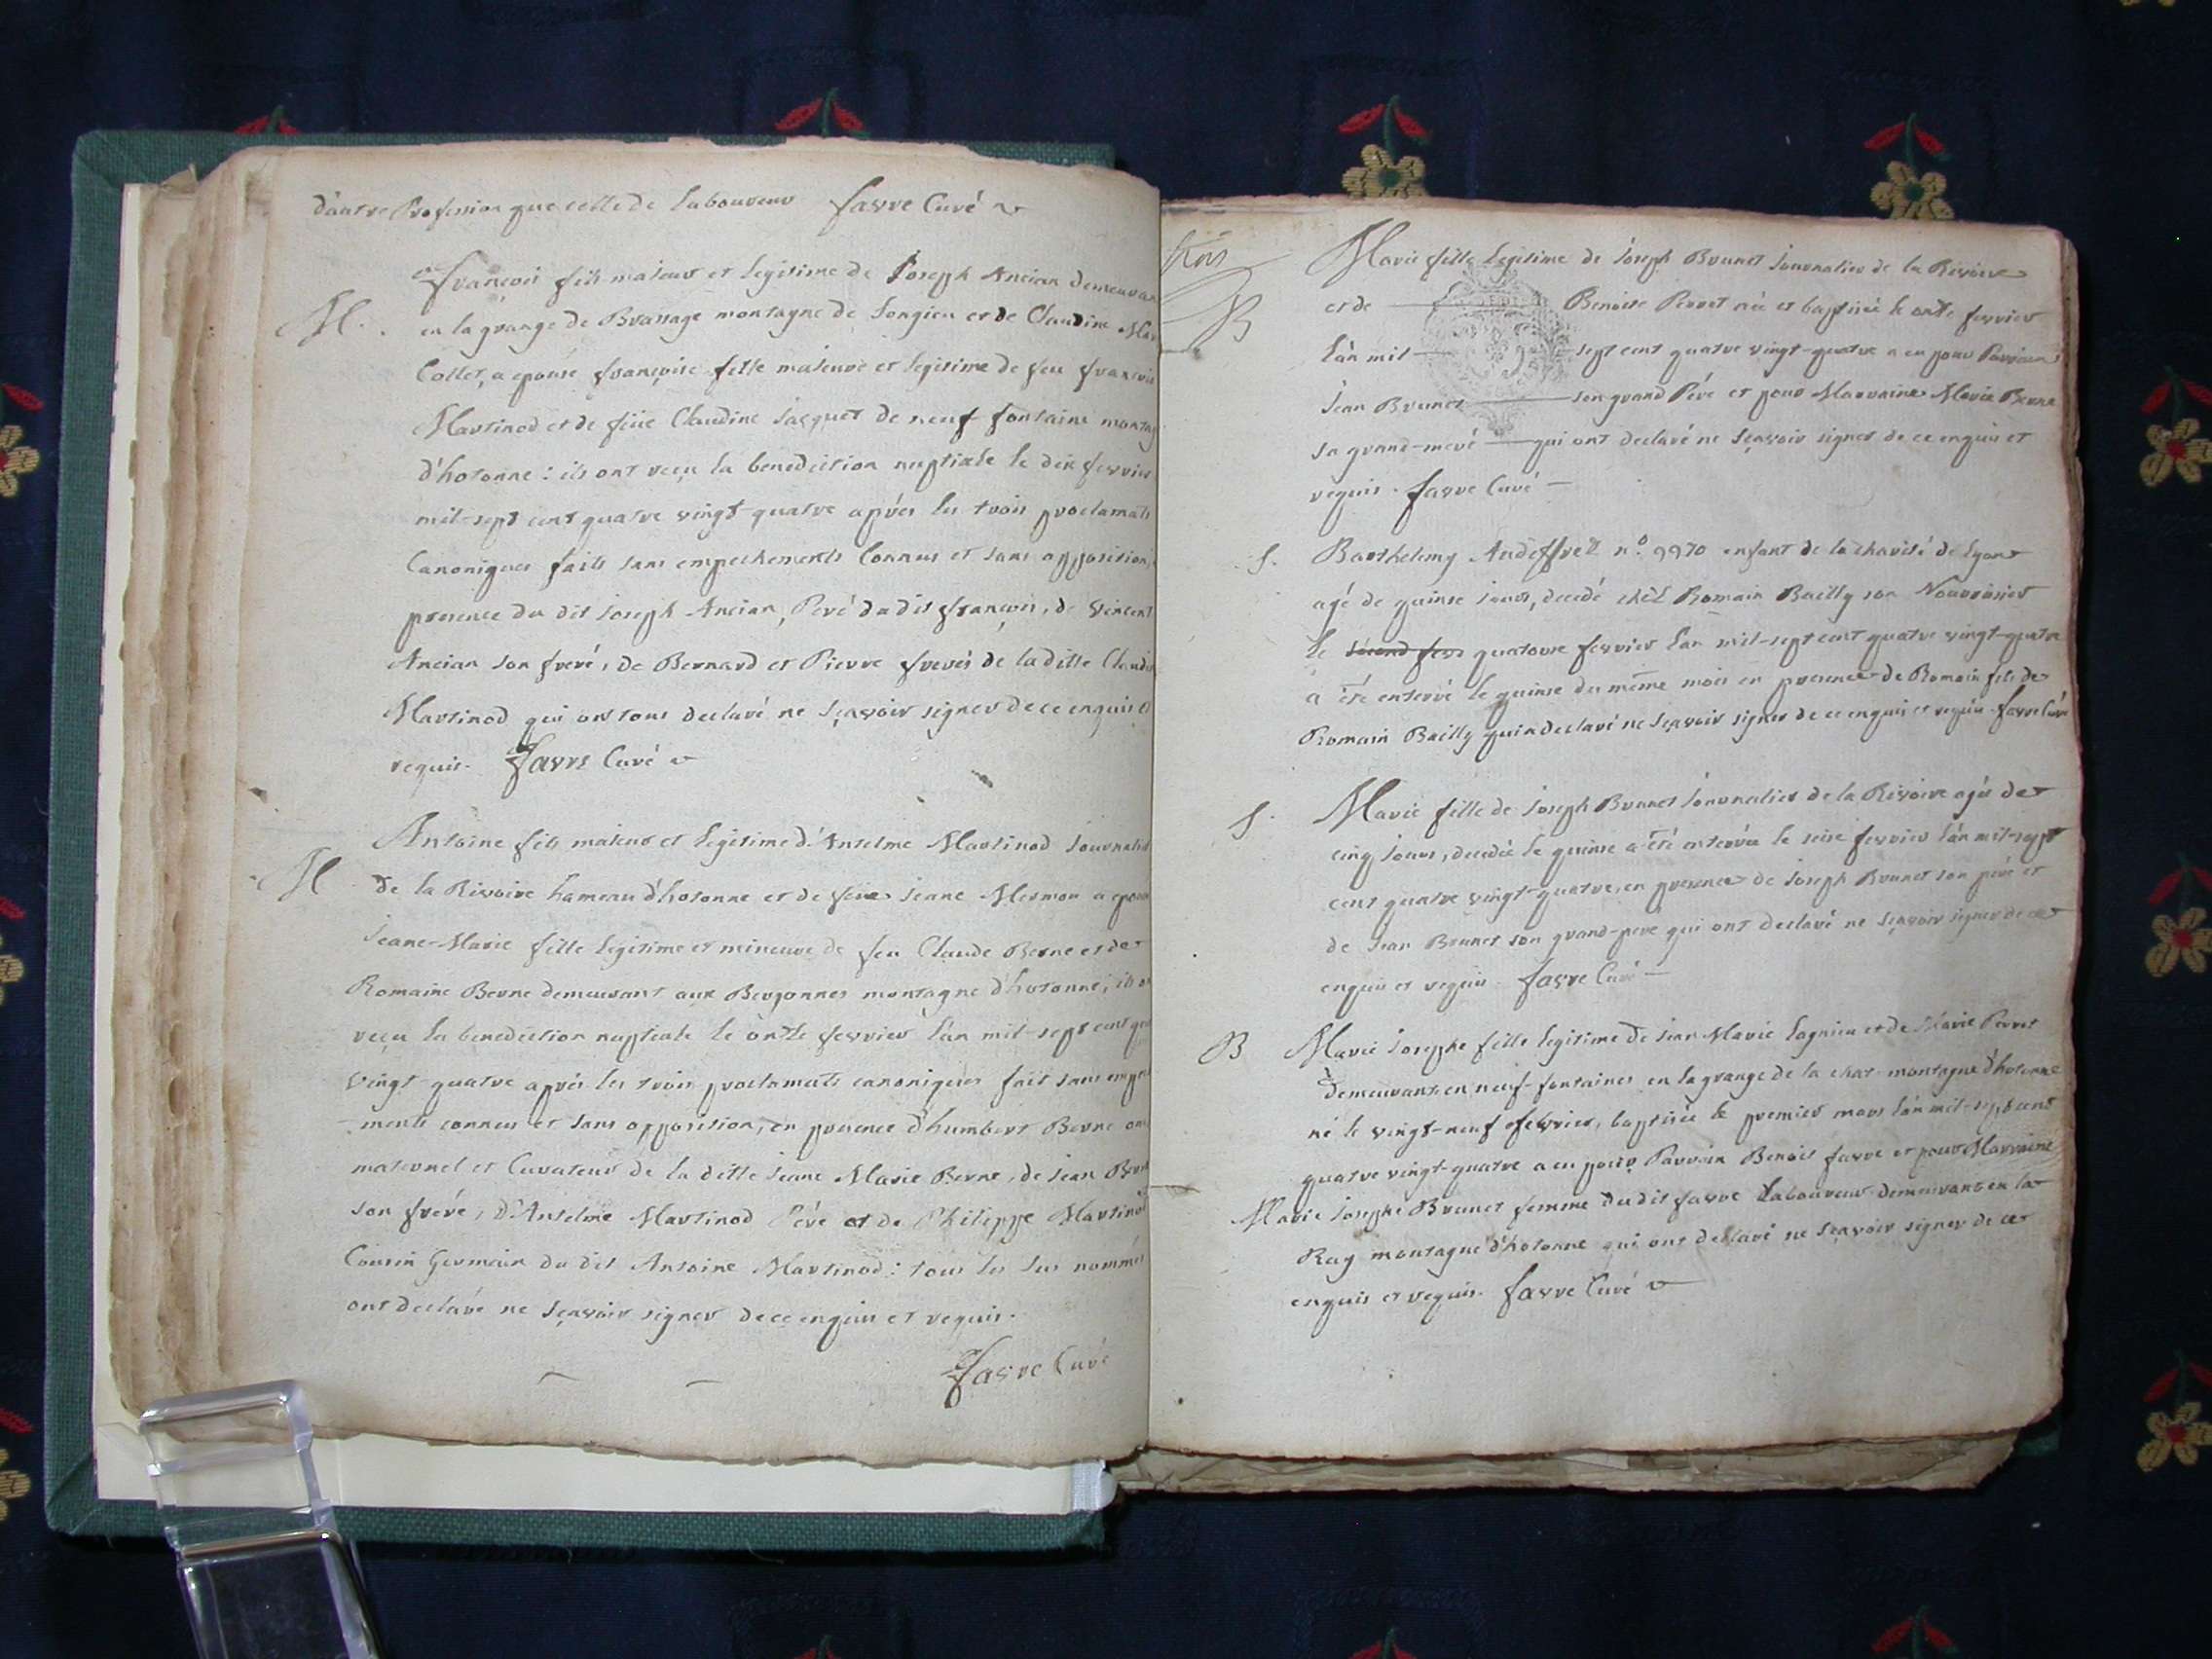 d'autre Profession que celle de laboureur favre Curé
M. françois fils majeur et legitime de Joseph Ancian demeuran
en la grange de Brassage montagne de Songieu et de Claudine
Collet, a epousé françoise fille majeure et legitime de feu françois
Martinod et de feüe Claudine Jacquet de neuf fontaine montag
d'hotonne : ils ont reçu la benediction nuptiale le dix fevrier
mil-sept cent quatre vingt-quatre aprés les trois proclamats
Canoniques faits sans empechements Connus et sans opposition,
presence du dit Joseph Ancian, Peré du dit françois, de Vincent
Ancian son freré, de Bernard et Pierre frerés de la ditte Claudi
Martinod qui ont tous declaré ne sçavoir signer de ce enquis et
requis. favre Curé
M Antoine fils majeur et legitime d'Anselme Martinod Journalie
de la Rivoire hameau d'hotonne et de feüe Jeane Mermon a epou
Jeane-Marie fille legitime et mineure de feu Claude Berne et de
Romaine Berne demeurant aux Bergonnes montagne d'hotonne, ils on
reçu la benediction nuptiale le onze fevrier l'an mil-sept cent qua
vingt-quatre aprés les trois proclamats canoniques fait sans empe
-ments connus et sans opposition, en presence d'humbert Berne on
maternel et Curateur de la ditte Jeane Marie Berne, de Jean Bern
son freré, d'Anselme Martinod Pére et de Philippe Martinod
Cousin Germain du dit Antoine Martinod : tous les sus nommés
ont declaré ne sçavoir signer de ce enquis et requis.
favre Curé
B Marie fille legitime de Joseph Brunet Journalier de la Rivoire
et de Benoite Perret née et baptisée le onze fevrier
l'an mil sept cent quatre vingt-quatre a eu pour Parrain
Jean Brunet son grand Pére et pour Marraine Marie Berne
sa grand-meré qui ont declaré ne sçavoir signer de ce enquis et
requis. favre Curé
S. Barthelemy Andeffrez n.o 9970 enfant de la charité de Lyon
agé de quinse jours, decedé chéz Romain Bailly son Nourrissier
le second fevr quatorse fevrier l'an mil-sept cent quatre vingt-quatre
a été enterré le quinse du même mois en presence de Romain fils de
Romain Bailly qui a declaré ne sçavoir signer de ce enquis et requis. favre Curé
S. Marie fille de Joseph Brunet Journalier de la Rivoire agée de
cinq jours, decedée le quinse a été enterrée le seise fevrier l'an mil-sept
cent quatre vingt-quatre, en presence de Joseph Brunet son peré et
de Jean Brunet son grand-pere qui ont declaré ne sçavoir signer de ce
enquis et requis. favre Curé
B Marie Josephe fille legitime de Jean Marie Lagnieu et de Marie Perret
demeurants en neuf-fontaines en la grange de la chat montagne d'hotonne
né le vingt-neuf fevrier, baptisée le premier mars l'an mil-sept cent
quatre vingt-quatre a eu pour Parrain Benoit favre et pour Marraine
Marie Josephe Brunet femme du dit favre Laboureur demeurants en la
Ray montagne d'hotonne qui ont declaré ne sçavoir signer de ce
enquis et requis. favre Curé